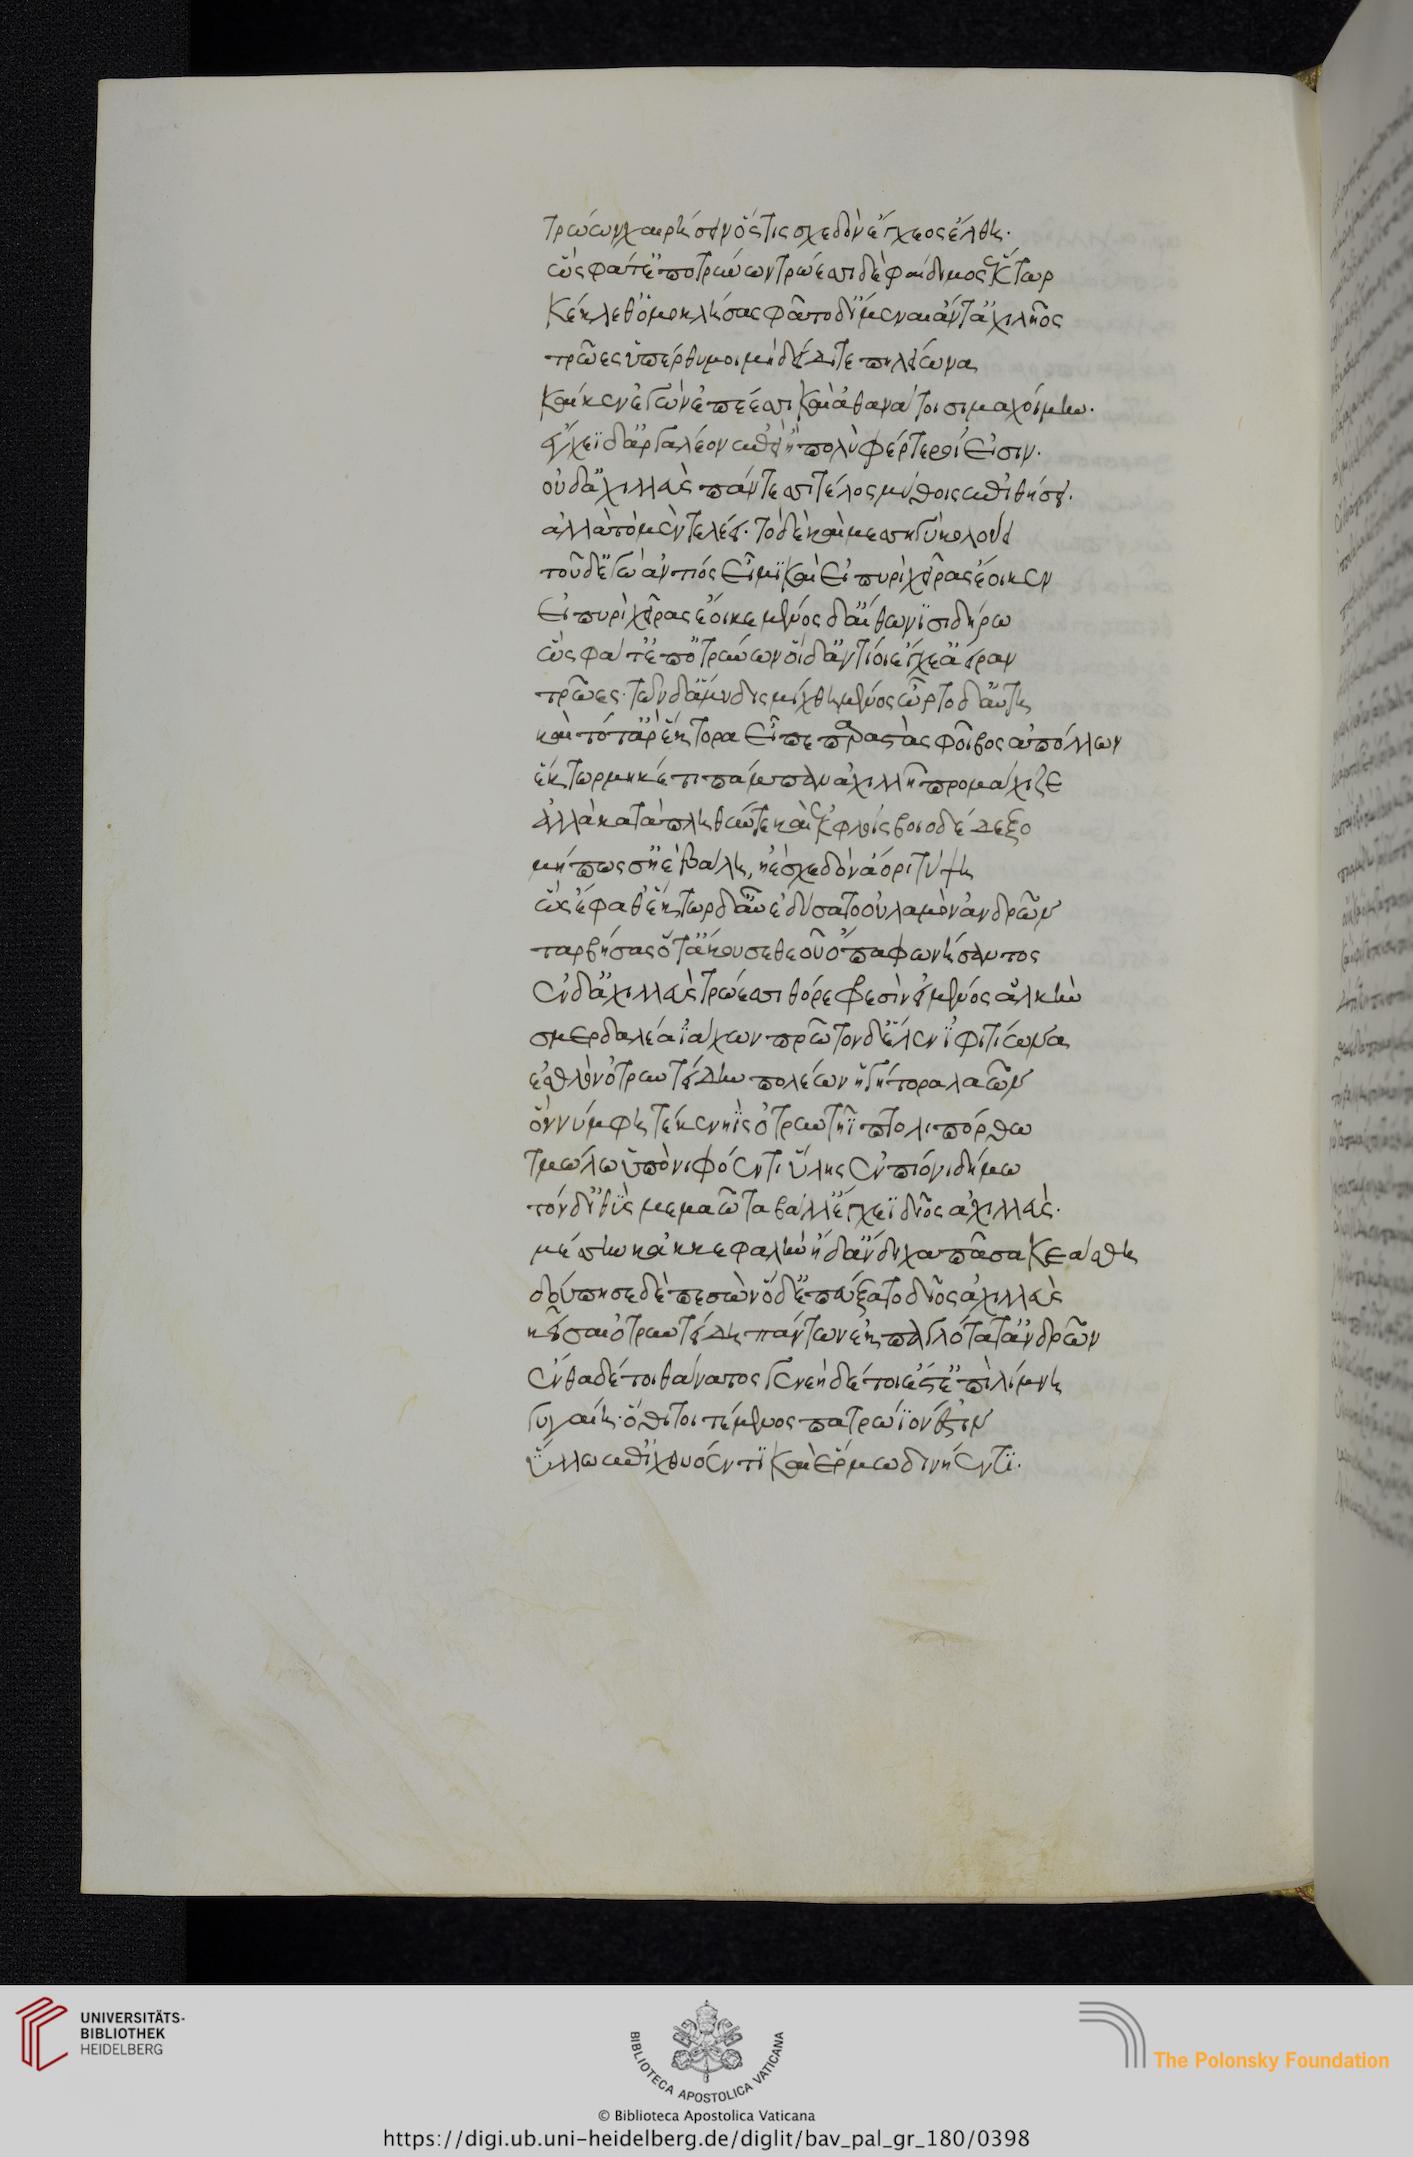 τρώων χαιρήσειν ὅς τις σχεδὸν ἔγχεος ἔλθη·
ὣς φάτ' ἐποτρύνων τρώεσσι δὲ φαίδιμος ἕκτωρ
κέκλεθ' ὁμοκλήσας φάτο δ' ἴμεναι ἄντ' ἀχιλῆος
τρῶες ὑπέρθυμοι μὴ δείδιτε πηλείωνα
καί κεν ἐγὼν ἐπέεσσι καὶ ἀθανάτοισι μαχοίμην·
ἔγχεϊ δ' ἀργαλέον ἐπειὴ πολὺ φέρτεροι εἰσιν·
οὐδ' ἀχιλλεὺς πάντεσσι τέλος μύθοις ἐπιθήσει·
ἀλλὰ τὸ μὲν τελέει· τὸ δὲ καὶ μεσσηγὺ κολούει
τοῦ δ' ἐγὼ ἀντίος εἶμι καὶ εἰ πυρὶ χεῖρας ἔοικεν
εἰ πυρὶ χεῖρας ἔοικε μένος δ' αἴθωνι σιδήρω
ὣς φάτ' ἐποτρύνων οἱ δ' ἀντίοι ἔγχε' ἄειραν
τρῶες· τῶν δ' ἄμυδις μίχθη μένος ὦρτο δ' ἀϋτή
καὶ τότ' ἄρ' ἕκτορα εἶπε παραστὰς φοῖβος ἀπόλλων
ἕκτωρ μηκέτι πάμπαν ἀχιλλῆϊ προμάχιζε
ἀλλὰ κατὰ πληθύν τε καὶ ἐκ φλοίσβοιο δέδεξο
μή πως σ' ἠὲ βάλη, ἠὲ σχεδὸν ἄορι τύψη
ὣς ἔφαθ' ἕκτωρ δ' αὖτις ἐδύσατο οὐλαμὸν ἀνδρῶν
ταρβήσας ὅτ' ἄκουσε θεοῦ ὄπα φωνήσαντος
ἐν δ' ἀχιλλεὺς τρώεσσι θόρε φρεσὶν εἱμένος ἀλκὴν
σμερδαλέα ἰάχων πρῶτον δ' ἕλεν ἰφιτίωνα
ἐσθλὸν ὀτρυντείδην πολέων ἡγήτορα λαῶν
ὃν νύμφη τέκε νηῒς ὀτρυντῆϊ πτολιπόρθω
τμώλω ὑπὸ νιφόεντι ὕδης ἐν πίονι δήμω
τὸν δ' ἰθὺς μεμαῶτα βάλλ' ἔγχεϊ δῖος ἀχιλλεύς·
μέσσην κὰκ κεφαλὴν ἡ δ' ἄνδιχα πᾶσα κεάσθη
δούπησε δὲ πεσὼν ὁ δ' ἐπεύξατο δῖος ἀχιλλεὺς
κεῖσαι ὀτρυντείδη πάντων ἐκπαγλότατ' ἀνδρῶν
ἐνθάδε τοι θάνατος γενεὴ δέ τοι ἐστ' ἐπὶ λίμνη
γυγαίη· ὅθι τοι τέμενος πατρώϊόν ἐστιν
ὕλλω ἐπ' ἰχθυόεντι καὶ ἕρμω δινήεντι·
UNIVERSITÄTS-
BIBLIOTHEK
HEIDELBERG
BIBLIOTECA APOSTOLICA VATICANA
The Polonsky Foundation
© Biblioteca Apostolica Vaticana
https://digi.ub.uni-heidelberg.de/diglit/bav_pal_gr_180/0398